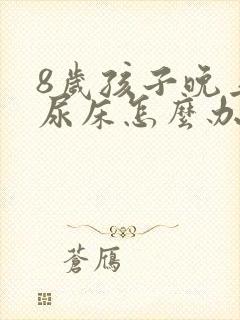 8歲孩子晚上
尿床怎麼办
蒼鴈